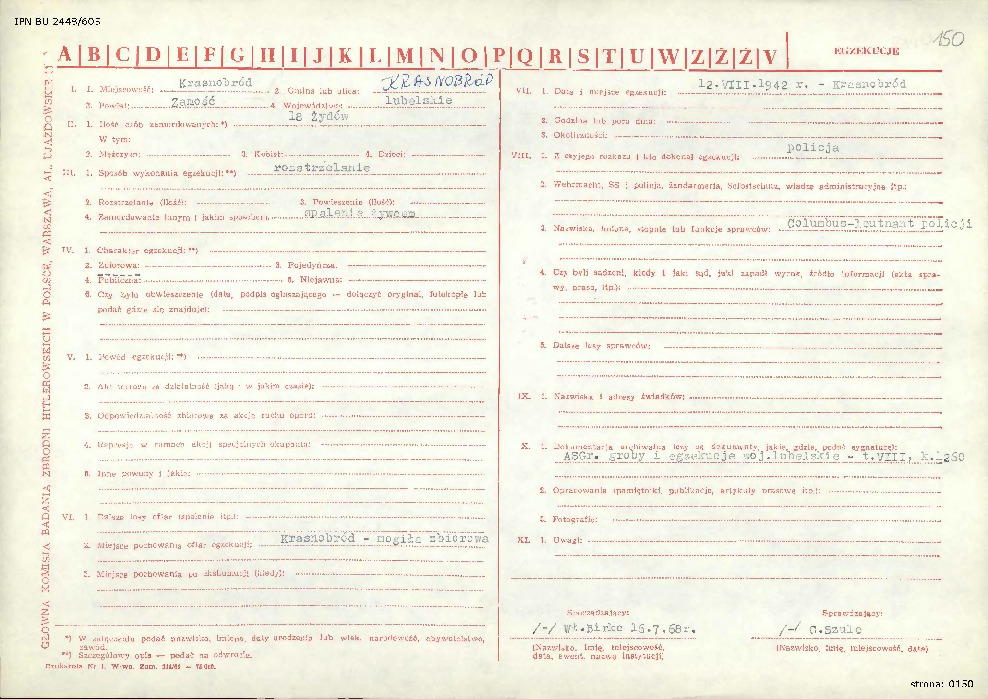 IPN BU 2448/605
150
A|B|C|D|E|F|G|H|I|J|K|L|M|N|O|P|Q|R|S|T|U|W|Z|Ż|Ź|V|
EGZEKUCJE
GŁÓWNA KOMISJA BADANIA ZBRODNI HITLEROWSKICH W POLSCE, WARSZAWA, AL. UJAZDOWSKIE
I. 1. Miejscowość: Krasnobród 2. Gmina lub ulica: KRASNOBRÓD
3. Powiat: Zamość 4. Województwo: lubelskie
II. 1. Ilość osób zamordowanych:*) 18 Żydów
W tym:
2. Mężczyzn: 3. Kobiet: 4. Dzieci:
III. 1. Sposób wykonania egzekucji:**) rozstrzelanie
2. Rozstrzelanie (ilość): 3. Powieszenie (ilość):
4. Zamordowanie innym i jakim sposobem: spalenie żywcem
IV. 1. Charakter egzekucji:**)
2. Zbiorowa: 3. Pojedyńcza:
4. Publiczna: 5. Niejawna:
6. Czy było obwieszczenie (data, podpis ogłaszającego — dołączyć oryginał, fotokopię lub
podać gdzie się znajduje):
V. 1. Powód egzekucji:**)
2. Akt terroru za działalność (jaką i w jakim czasie):
3. Odpowiedzialność zbiorowa za akcję ruchu oporu:
4. Represje w ramach akcji specjalnych okupanta:
5. Inne powody i jakie:
VI. 1. Dalsze losy ofiar (spalenie itp.):
2. Miejsce pochowania ofiar egzekucji: Krasnobród - mogiła zbiorowa
3. Miejsce pochowania po ekshumacji (kiedy):
*) W załączeniu podać nazwiska, imiona, daty urodzenia lub wiek, narodowość, obywatelstwo,
zawód.
**) Szczegółowy opis — podać na odwrocie.
Drukarnia Nr 1, W-wa. Zam.
VII. 1. Data i miejsce egzekucji: 12.VIII.1942 r. - Krasnobród
2. Godzina lub pora dnia:
3. Okoliczności:
VIII. 1. Z czyjego rozkazu i kto dokonał egzekucji: policja
2. Wehrmacht, SS i policja, żandarmeria, Selbstschutz, władze administracyjne itp.:
3. Nazwiska, imiona, stopnie lub funkcje sprawców: Columbus-leutnant policji
4. Czy byli sądzeni, kiedy i jaki sąd, jaki zapadł wyrok, źródło informacji (akta spra-
wy, prasa, itp.):
5. Dalsze losy sprawców:
IX. 1. Nazwiska i adresy świadków:
X. 1. Dokumentacja archiwalna (czy są dokumenty, jakie, gdzie, podać sygnaturę):
ASGr. groby i egzekucje woj.lubelskie - t.VIII, k.1260
2. Opracowania (pamiętniki, publikacje, artykuły prasowe itp.):
3. Fotografie:
XI. 1. Uwagi:
Sporządzający:
/-/ Wł.Birke 16.7.68r.
(Nazwisko, imię, miejscowość,
data, ewent. nazwa instytucji)
Sprawdzający:
/-/ C.Szulc
(Nazwisko, imię, miejscowość, data)
strona: 0150